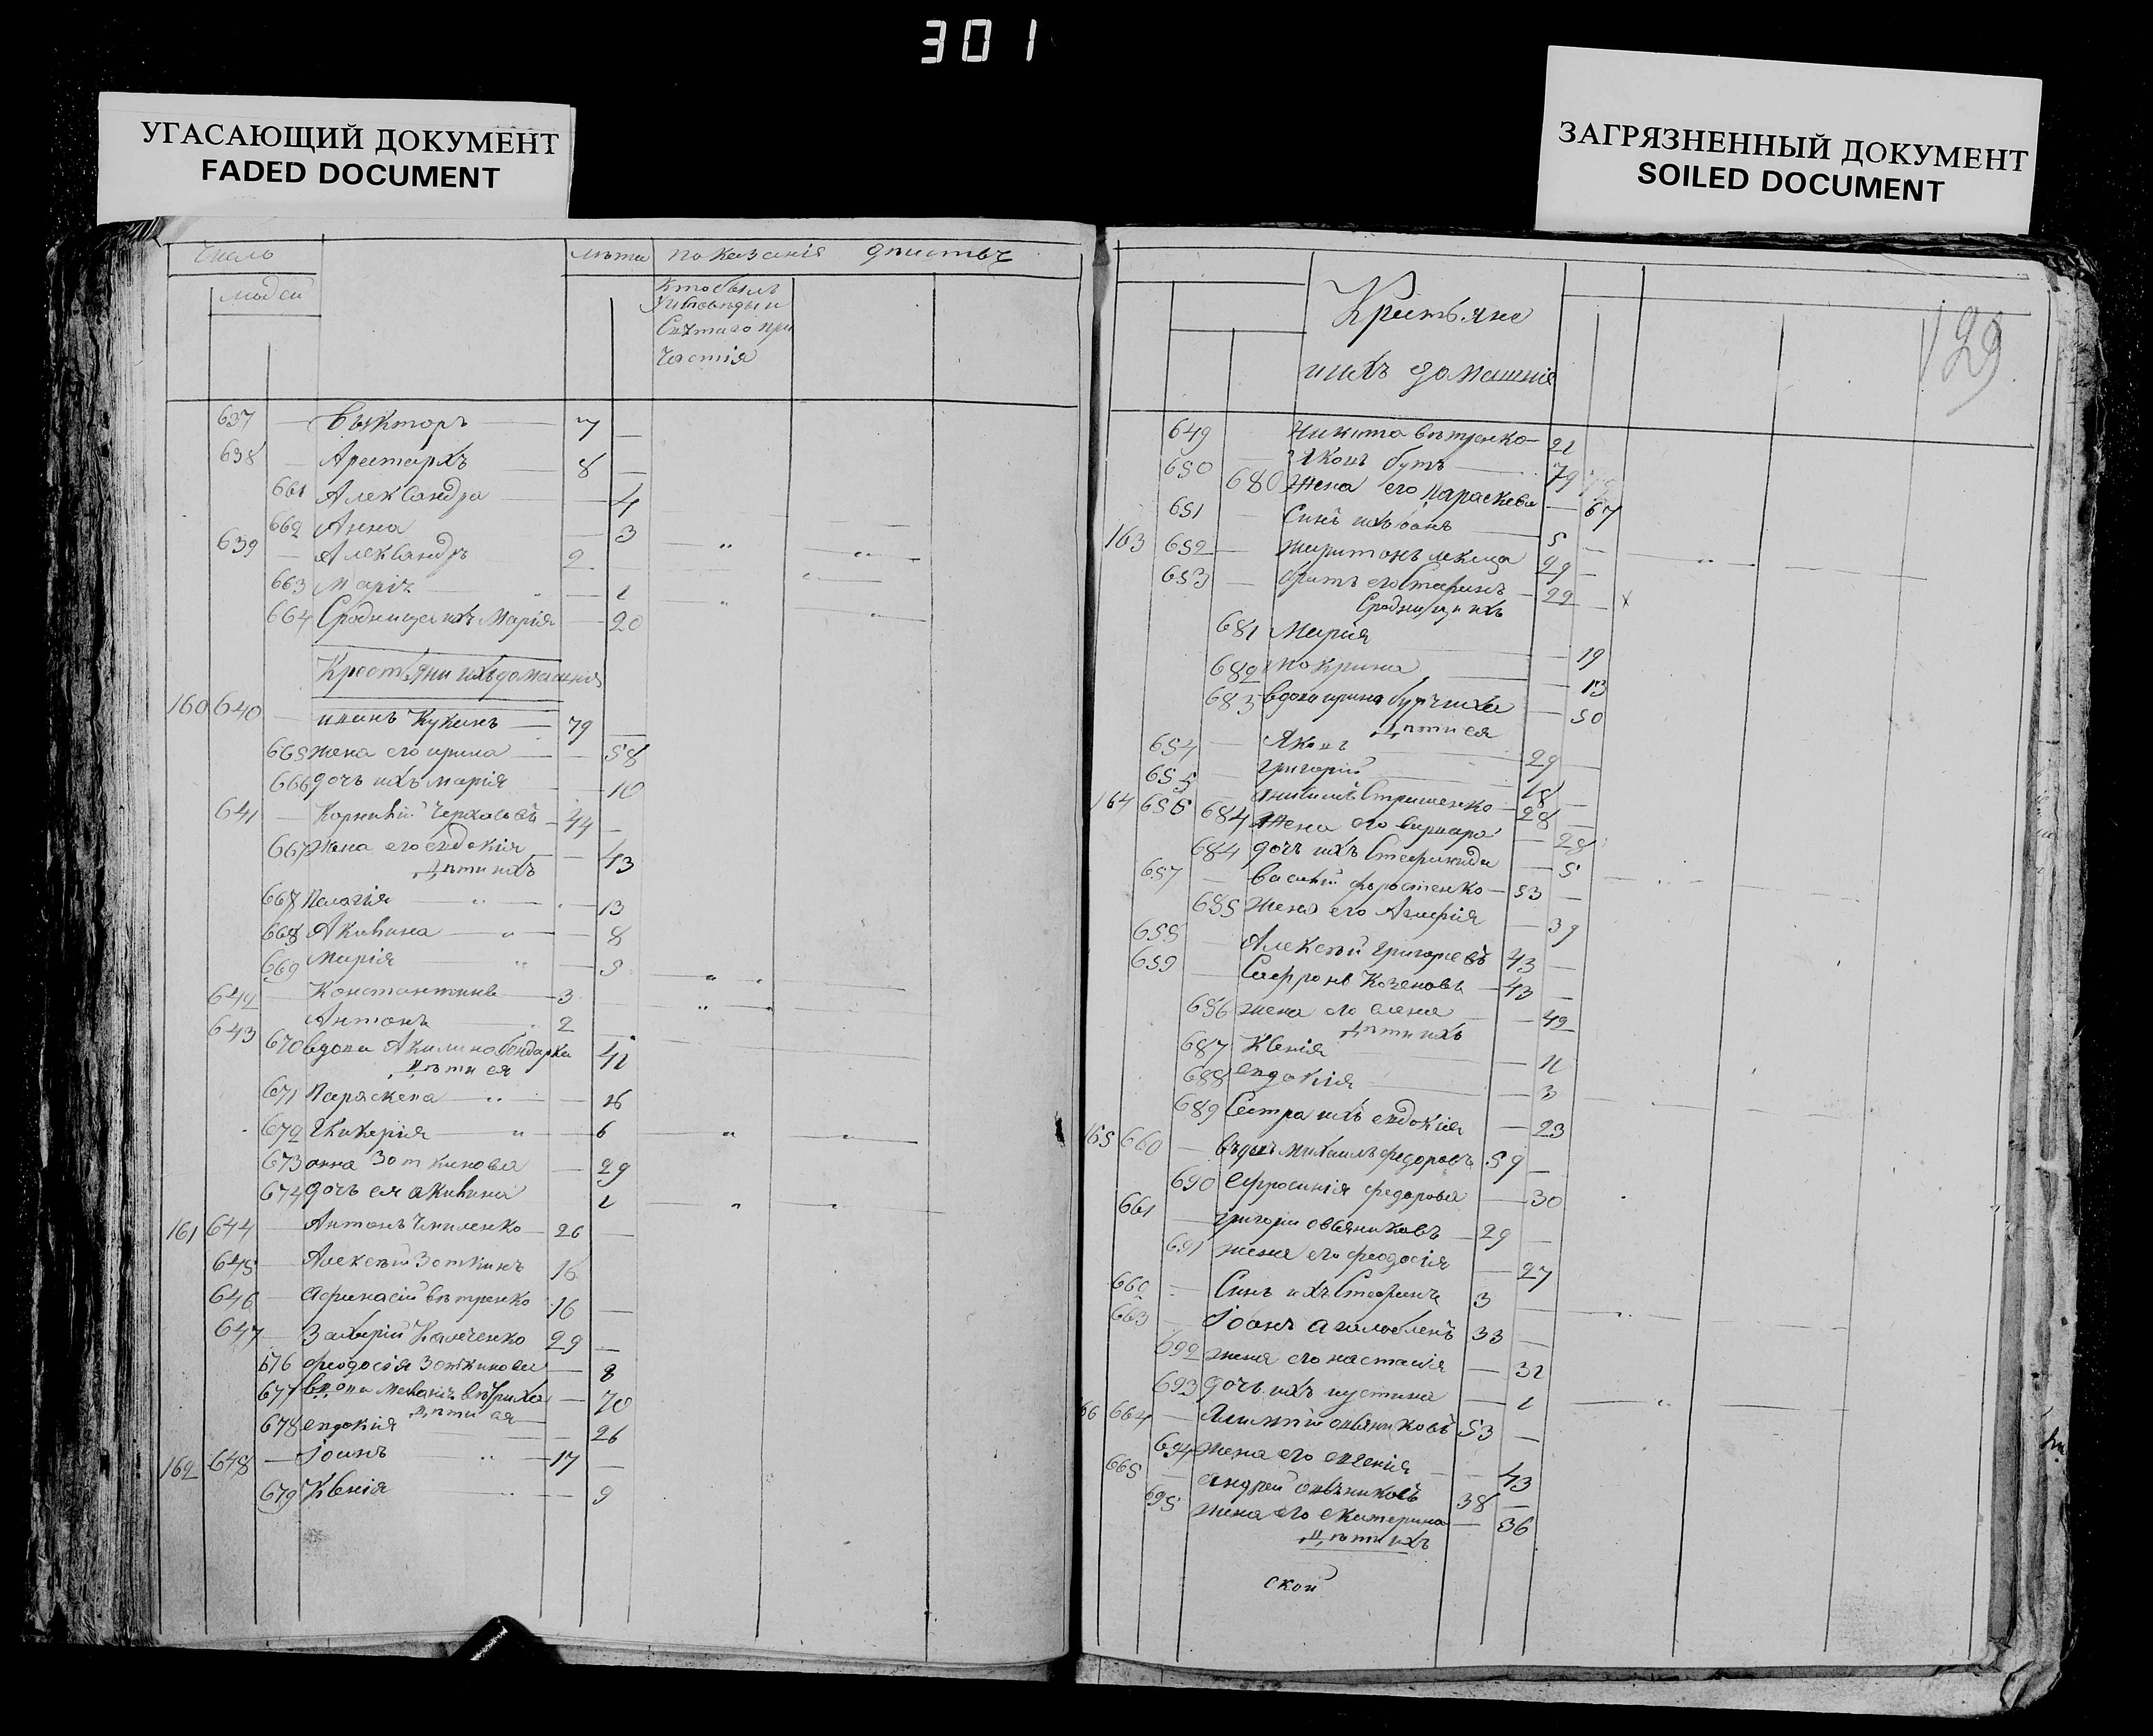 301
УГАСАЮЩИЙ ДОКУМЕНТ
FADED DOCUMENT
ЗАГРЯЗНЕННЫЙ ДОКУМЕНТ
SOILED DOCUMENT
Число лѣта показанія
людей
кто былъ
Святаго при
частія
637 — Викторъ — 7 —
638 — Аристархъ 8 —
661 Александра — 4
662 Анна — 3
639 — Александръ 2
663 — 1
664 Сродница ихъ Марія — 20
Крестьяни ихъ домашнія
160 640 — Кукинъ — 79 —
665 жена его ирина — 58
666 дочь ихъ марія — 10
641 — Черкасовъ — 44 —
667 жена его евдокія — 43
дѣти ихъ
668 Палагія — 13
668 Акилина — 8
669 Марія — 9
642 — Константинъ — 3
643 Антонъ 2
670 вдова Акилина бондарка 41
дѣти ея
671 Параскева — 16
672 Гликерія — 6
673 анна Зоткинова — 29
674 дочь ея акилина 1
161 644 — Антонъ 26 —
645 — Алексѣй Зоткинъ 16
646 — Афанасій вѣтренко 16 —
647 — 29 —
676 феодосія Зоткинова — 8
677 вдова — 70
дѣти ея
678 евдокія — 26
162 648 — Іоанъ 17 —
679 Ксенія — 9
Крестьяне
ихъ домашніе
129
649 Никита вѣтренко — 21
650 — Яковъ бутъ — 79
680 жена его Параскева — 67
651 — Синъ ихъ 5 —
163 652 — 29 —
653 — братъ его 22 — х
Сродници ихъ
681 Марія — 19
682 мокрина — 13
683 вдова ирина — 50
дѣти ея
654 — Яковъ 29 —
655 — григорій 18 —
164 656 — 28 —
684 жена его варвара — 28
684 дочь ихъ Стефанида — 5
657 — василій — 53 —
685 жена его — 39
655 — Алексѣй григорьевъ 43 —
659 — Сафронъ Козеновъ — 43 —
686 жена его елена — 42
дѣти ихъ
687 Ксенія — 11
688 евдокія — 3
689 Сестра ихъ евдокія — 23
165 660 — михаилъ федоровъ 59 —
690 Ефросинія федорова — 30
661 — григорій овсяниковъ — 29 —
691 жена его феодосія — 27
662 — Синъ ихъ Стефанъ 3 —
663 — Іоанъ 33 —
692 жена его настасія — 32
693 дочь ихъ иустина — 1
66 664 — овсяниковъ 53 —
694 жена его евгенія — 43
665 — андрей овсяниковъ 38 —
695 жена его екатерина — 36
дѣти ихъ
ской